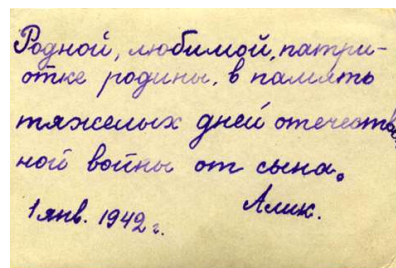 Родной, любимой, патри-
отке родины. в память
тяжелых дней отечествен
ной войны от сына.
Алик.
1 янв. 1942 г.